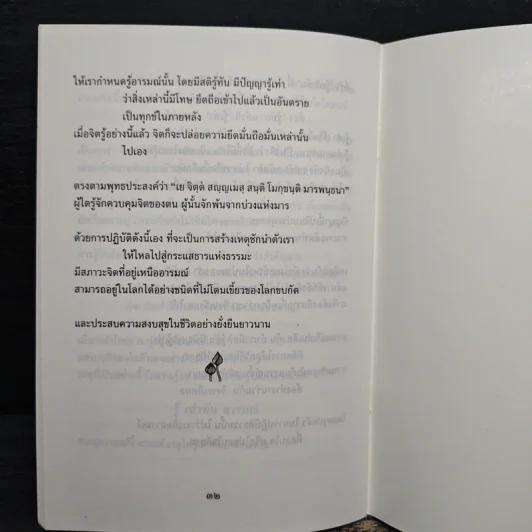 ให้เรากำหนดรู้อารมณ์นั้น โดยมีสติรู้ทัน มีปัญญารู้เท่า
ว่าสิ่งเหล่านี้มีโทษ ยึดถือเข้าไปแล้วเป็นอันตราย
เป็นทุกข์ในภายหลัง
เมื่อจิตรู้อย่างนี้แล้ว จิตก็จะปล่อยความยึดมั่นถือมั่นเหล่านั้น
ไปเอง
ตรงตามพุทธประสงค์ว่า “เย จิตฺตํ สญฺญเมสฺ สนฺติ โมกฺขนฺติ มารพนฺธนา”
ผู้ใดรู้จักควบคุมจิตของตน ผู้นั้นจักพ้นจากบ่วงแห่งมาร
ด้วยการปฏิบัติดังนี้เอง ที่จะเป็นการสร้างเหตุชักนำตัวเรา
ให้ไหลไปสู่กระแสธารแห่งธรรมะ
มีสภาวะจิตที่อยู่เหนืออารมณ์
สามารถอยู่ในโลกได้อย่างชนิดที่ไม่โดนเขี้ยวของโลกขบกัด
และประสบความสงบสุขในชีวิตอย่างยั่งยืนยาวนาน
๓๒